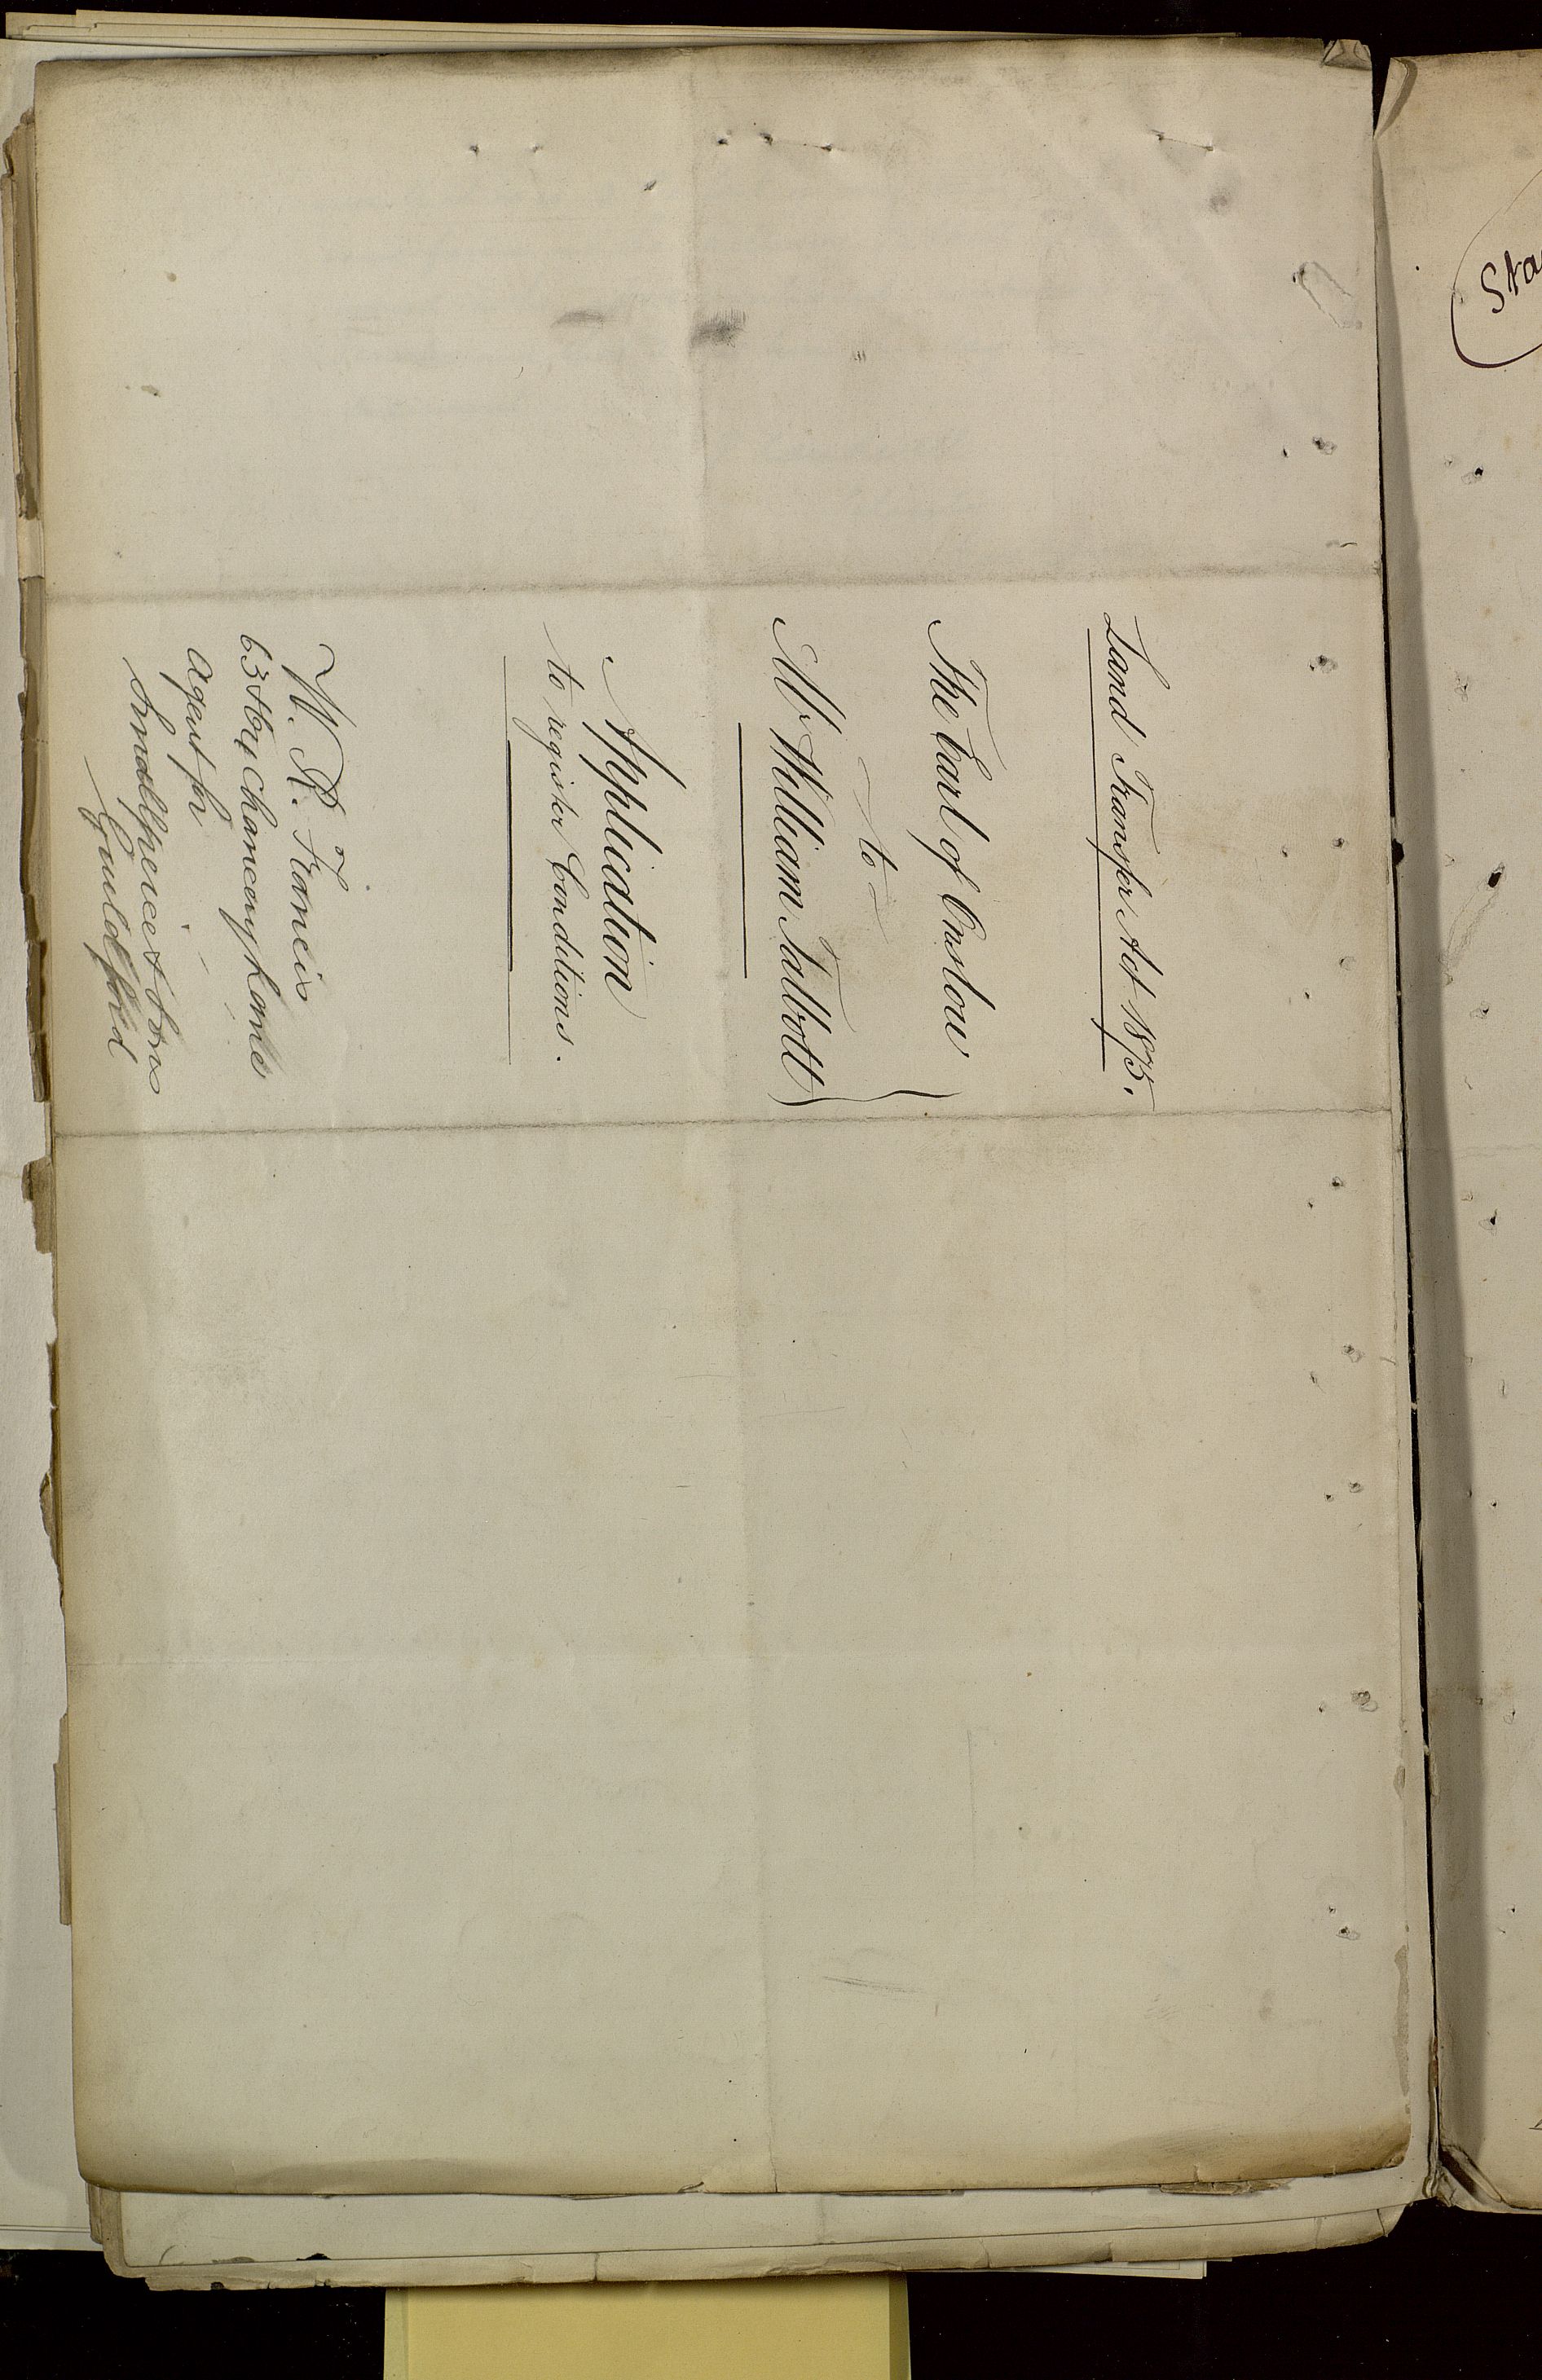 Land Transfer Act 1875.
The Earl of Onslow
to
Mr William Talbott
Application
to register Conditions.
W. R. Francis
of
63 & 64 Chancery Lane
Agent for
Smallpeice & Sons
Guildford
Sta